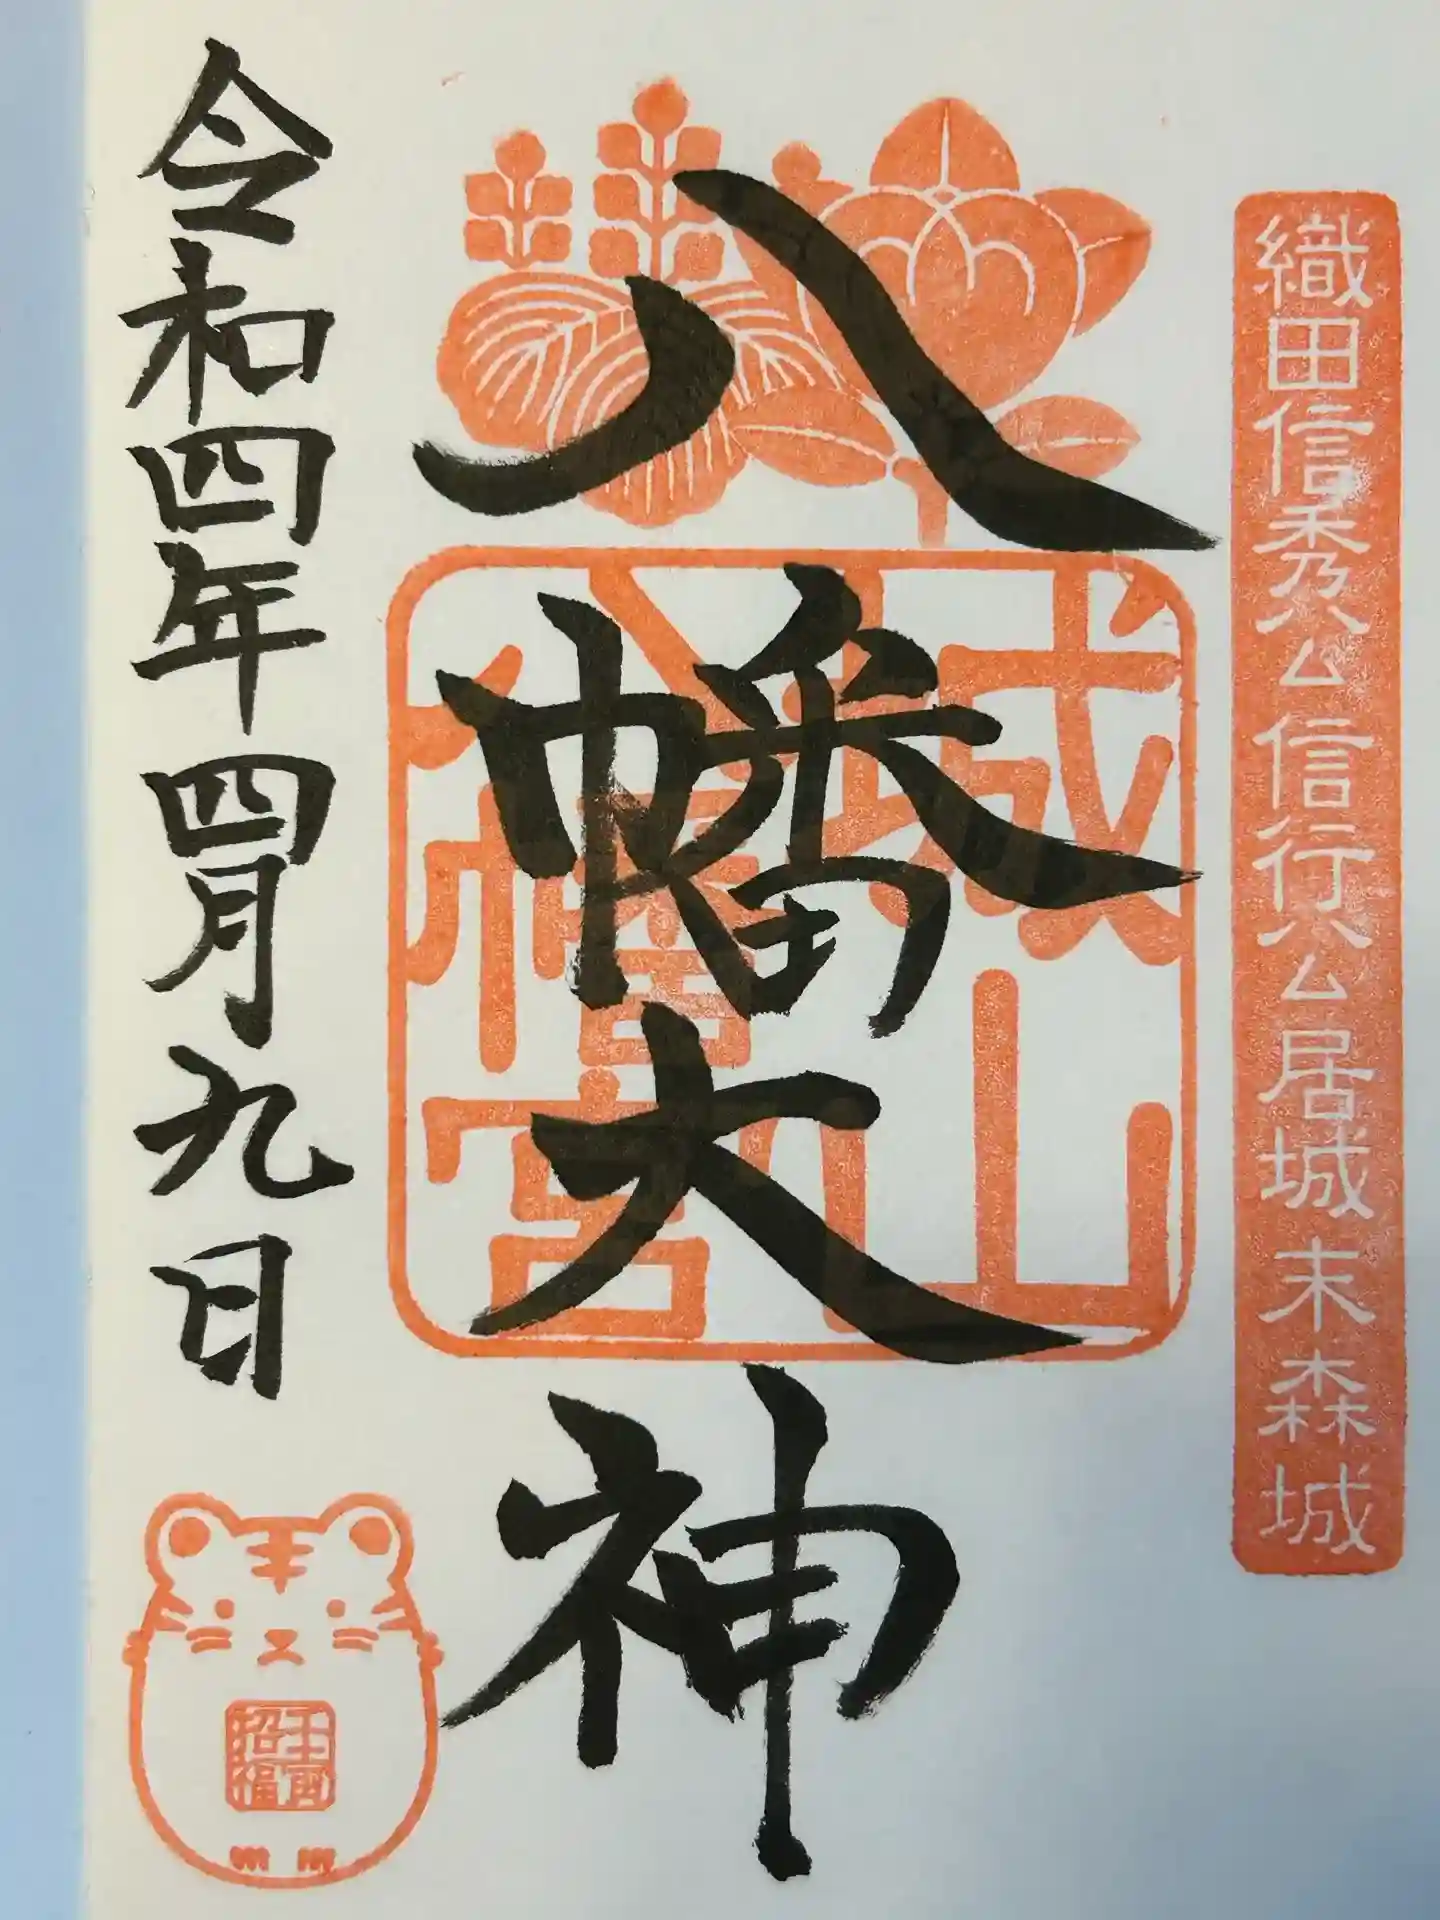 織田信秀公信行公居城末森城
八幡大神
城山
八幡宮
令和四年四月九日
招福